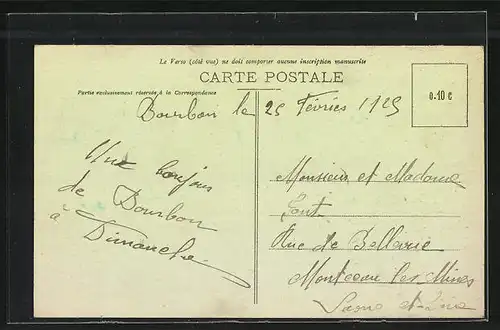 Le Verso (côté vue) ne doit comporter aucune inscription manuscrite
CARTE POSTALE
Partie exclusivement réservée à la Correspondance
0.10 c
Bourbon le 25 Février 1925
Une bonjour
de Bourbon
à Dimanche
Monsieur et Madame
Rue de Bellevue
Montceau les Mines
Saône et Loire